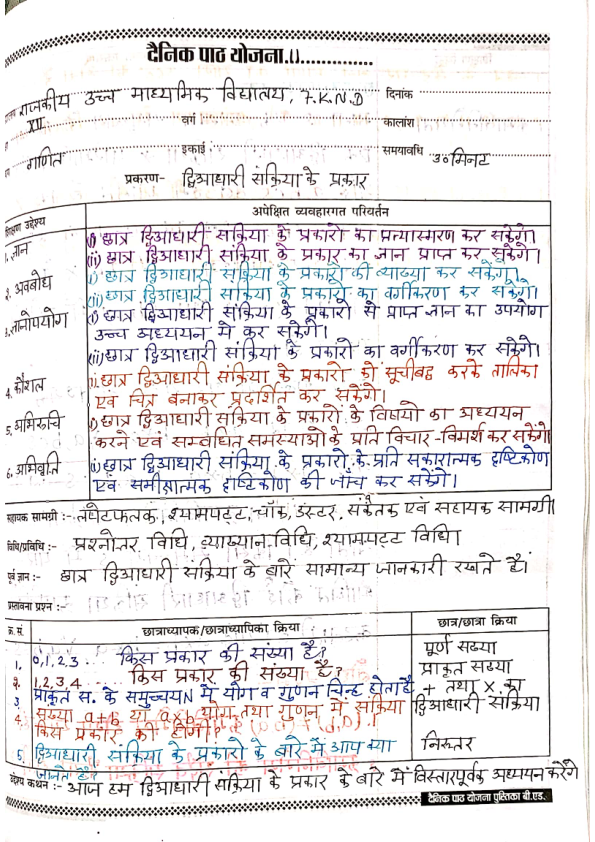 दैनिक पाठ योजना.11..............
राजकीय उच्च माध्यमिक विद्यालय, F.K.N.D दिनांक
XII वर्ग कालांश
गणित इकाई समयावधि 30 मिनट
प्रकरण- द्विआधारी संक्रिया के प्रकार
शिक्षण उद्देश्य अपेक्षित व्यवहारगत परिवर्तन
1. ज्ञान (i) छात्र द्विआधारी संक्रिया के प्रकारो का प्रत्यास्मरण कर सकेंगे।
(ii) छात्र द्विआधारी संक्रिया के प्रकार का ज्ञान प्राप्त कर सकेंगे।
2. अवबोध (i) छात्र द्विआधारी संक्रिया के प्रकारो की व्याख्या कर सकेंगे।
(ii) छात्र द्विआधारी संक्रिया के प्रकारो का वर्गीकरण कर सकेंगे।
3. ज्ञानोपयोग (i) छात्र द्विआधारी संक्रिया के प्रकारो से प्राप्त ज्ञान का उपयोग
उच्च अध्ययन में कर सकेंगे।
(ii) छात्र द्विआधारी संक्रिया के प्रकारो का वर्गीकरण कर सकेंगे।
4. कौशल छात्र द्विआधारी संक्रिया के प्रकारो को सूचीबद्ध करके तालिका
एवं चित्र बनाकर प्रदर्शित कर सकेंगे।
5. अभिरूचि i) छात्र द्विआधारी संक्रिया के प्रकारो के विषयो का अध्ययन
करने एवं सम्बंधित समस्याओ के प्रति विचार-विमर्श कर सकेंगे।
6. अभिवृति छात्र द्विआधारी संक्रिया के प्रकारो के प्रति सकारात्मक दृष्टिकोण
एवं समीक्षात्मक दृष्टिकोण की जाँच कर सकेंगे।
सहायक सामग्री :- लपेटफलक, श्यामपट्ट, चॉक, डस्टर, संकेतक एवं सहायक सामग्री।
विधि/प्रविधि :- प्रश्नोत्तर विधि, व्याख्यान विधि, श्यामपट्ट विधि।
पूर्व ज्ञान :- छात्र द्विआधारी संक्रिया के बारें सामान्य जानकारी रखते है।
प्रस्तावना प्रश्न :-
क्र. सं. छात्राध्यापक/छात्राध्यापिका क्रिया छात्र/छात्रा क्रिया
1. 0,1,2,3 .... किस प्रकार की संख्या है? पूर्ण संख्या
2. 1,2,3,4 .... किस प्रकार की संख्या है? प्राकृत संख्या
3. प्राकृत स. के समुच्चय N में योग व गुणन चिन्ह होता है + तथा x का
4. संख्या a+b या axb योग तथा गुणन में संक्रिया द्विआधारी संक्रिया
किस प्रकार की होगी?
5. द्विआधारी संक्रिया के प्रकारो के बारे में आप क्या निरुत्तर
जानते है?
उद्देश्य कथन :- आज हम द्विआधारी संक्रिया के प्रकार के बारे में विस्तारपूर्वक अध्ययन करेंगे
दैनिक पाठ योजना पुस्तिका बी.एड.